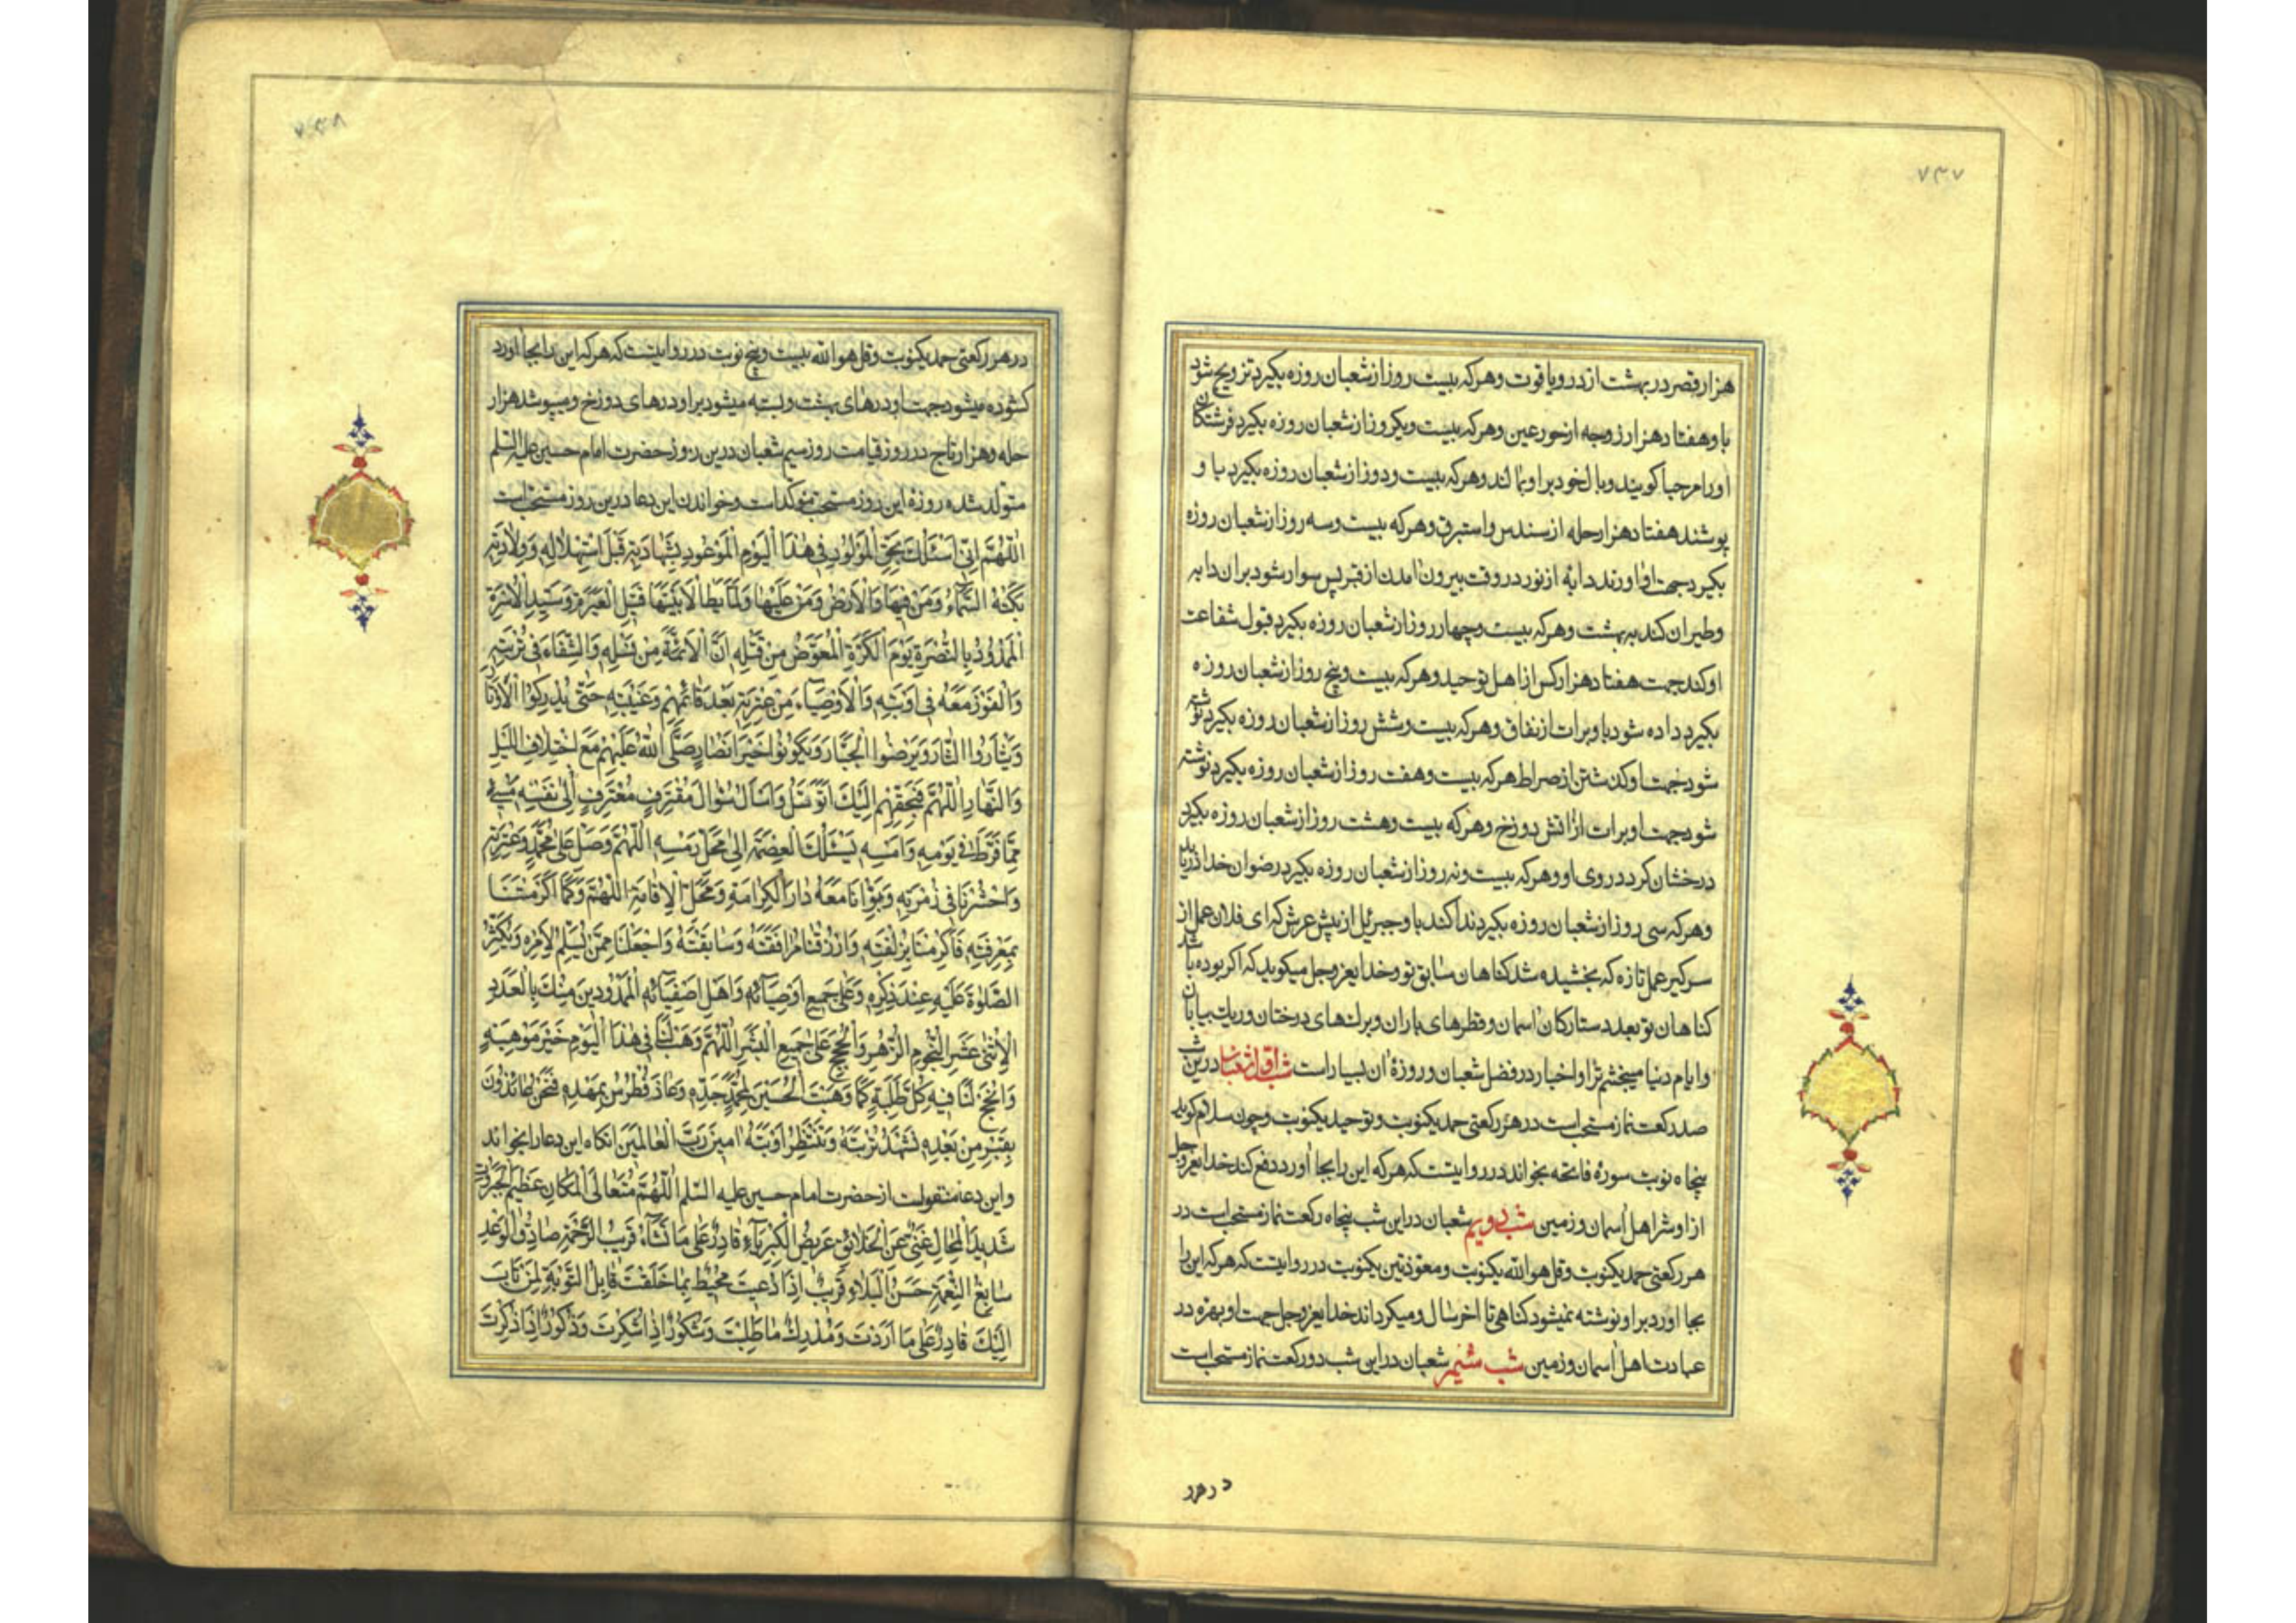 ۷۳۷
هزار قصر در بهشت از در و یاقوت و هر که بیست روز از شعبان روزه بگیرد تزویج شود
با و هفتاد هزار زوجه از حور عین و هر که بیست و یکروز از شعبان روزه بگیرد فرشتگان
او را مرحبا کویند و بال خود بر او بمالند و هر که بیست و دو روز از شعبان روزه بگیرد با و
پوشند هفتاد هزار حله از سندس و استبرق و هر که بیست و سه روز از شعبان روزه
بکیرد جهت او اورند دابه از نور در وقت بیرون آمدن از قبر پس سوار شود بران دابه
و طیران کند به بهشت و هر که بیست و چهار روز از شعبان روزه بگیرد قبول شفاعت
او کند جهت هفتاد هزار کس از اهل توحید و هر که بیست و پنج روز از شعبان روزه
بگیرد داده شود باو برات از نفاق و هر که بیست و شش روز از شعبان روزه بگیرد نوشته
شود جهت او کذشتن از صراط هر که بیست و هفت روز از شعبان روزه بکیرد نوشته
شود جهت او برات از اتش دوزخ و هر که بیست و هشت روز از شعبان روزه بکیرد
درخشان کردد روی او و هر که بیست و نه روز از شعبان روزه بکیرد رضوان خدا دریابد
و هر که سی روز از شعبان روزه بکیرد ندا کند باو جبرئیل از پیش عرش که ای فلان عمل از
سر کیر عمل تازه که بخشیده شد کناهان سابق تو و خدایعز و جل میکوید که اکر بوده باشد
کناهان تو بعدد ستارکان اسمان و قطرهای باران و برک های درختان و ریک بیابان
و ایام دنیا میبخشم ترا و اخبار در فضل شعبان و روزهٔ آن بسیار است شب اول شعبان درین شب
صد رکعت نماز مستحب است در هر رکعتی حمد یکنوبت و توحید یکنوبت و چون سلام کوید
پنجاه نوبت سورهٔ فاتحه بخواند در روایتست که هر که این را بجا اورد دفع کند خدایعز و جل
از او شر اهل اسمان و زمین شب دویم شعبان در این شب پنجاه رکعت نماز مستحب است در
هر رکعتی حمد یکنوبت و قل هو الله یکنوبت و معوذتین یکنوبت در روایتست که هر که این را
بجا اورد بر او نوشته نمیشود کناهی تا اخر سال و میکرداند خدایعز و جل جهت او بهره در
عبادت اهل اسمان و زمین شب سیم شعبان در این شب دو رکعت نماز مستحب است
در هر
در هر رکعتی حمد یکنوبت و قل هو الله بیست و پنج نوبت در روایتست که هر که این را بجا اورد
کشوده میشود جهت او درهای بهشت و بسته میشود بر او درهای دوزخ و میپوشد هزار
حله و هزار تاج در روز قیامت روز سیم شعبان درین روز حضرت امام حسین علیه السلم
متولد شده روزهٔ این روز مستحب مؤکد است و خواندن این دعا درین روز مستحب است
اَللّٰهُمَّ اِنّی اَسْئَلُكَ بِحَقِّ الْمَوْلُودِ فی هٰذَا الْیَوْمِ الْمَوْعُودِ بِشَهادَتِهِ قَبْلَ اسْتِهْلالِهِ وَوِلادَتِهِ
بَكَتْهُ السَّمآءُ وَمَنْ فیها وَالْاَرْضُ وَمَنْ عَلَیْها وَلَمّا یَطَأْ لابَتَیْها قَتیلِ الْعَبْرَةِ وَسَیِّدِ الْاُسْرَةِ
الْمَمْدُودِ بِالنُّصْرَةِ یَوْمَ الْكَرَّةِ الْمُعَوَّضِ مِنْ قَتْلِهِ اَنَّ الْاَئِمَّةَ مِنْ نَسْلِهِ وَالشِّفاءَ فی تُرْبَتِهِ
وَالْفَوْزَ مَعَهُ فی اَوْبَتِهِ وَالْاَوْصِیآءَ مِنْ عِتْرَتِهِ بَعْدَ قآئِمِهِمْ وَغَیْبَتِهِ حَتّی یُدْرِكُوا الْاَوْتارَ
وَیَثْأَرُوا الثّارَ وَیُرْضُوا الْجَبّارَ وَیَكُونُوا خَیْرَ اَنْصارٍ صَلَّی اللّٰهُ عَلَیْهِمْ مَعَ اخْتِلافِ اللَّیْلِ
وَالنَّهارِ اَللّٰهُمَّ فَبِحَقِّهِمْ اِلَیْكَ اَتَوَسَّلُ وَاَسْأَلُ سُؤالَ مُقْتَرِفٍ مُعْتَرِفٍ اِلیٰ نَفْسِهِ مُسیءٍ
مِمّا فَرَّطَ فی یَوْمِهِ وَاَمْسِهِ یَسْئَلُكَ الْعِصْمَةَ اِلیٰ مَحَلِّ رَمْسِهِ اَللّٰهُمَّ وَصَلِّ عَلیٰ مُحَمَّدٍ وَعِتْرَتِهِ
وَاحْشُرْنا فی زُمْرَتِهِ وَبَوِّأْنا مَعَهُ دارَ الْكَرامَةِ وَمَحَلَّ الْاِقامَةِ اَللّٰهُمَّ وَكَما اَكْرَمْتَنا
بِمَعْرِفَتِهِ فَاَكْرِمْنا بِزُلْفَتِهِ وَارْزُقْنا مُرافَقَتَهُ وَسابِقَتَهُ وَاجْعَلْنا مِمَّنْ یُسَلِّمُ لِاَمْرِهِ وَیُكْثِرُ
الصَّلٰوةَ عَلَیْهِ عِنْدَ ذِكْرِهِ وَعَلیٰ جَمیعِ اَوْصِیآئِهِ وَاَهْلِ اَصْفِیآئِهِ الْمَمْدُودینَ مِنْكَ بِالْعَدَدِ
الْاِثْنَیْ عَشَرَ النُّجُومِ الزُّهَرِ وَالْحُجَجِ عَلیٰ جَمیعِ الْبَشَرِ اَللّٰهُمَّ وَهَبْ لَنا فی هٰذَا الْیَوْمِ خَیْرَ مَوْهِبَةٍ
وَاَنْجِحْ لَنا فیهِ كُلَّ طَلِبَةٍ كَما وَهَبْتَ الْحُسَیْنَ لِمُحَمَّدٍ جَدِّهِ وَعاذَ فُطْرُسُ بِمَهْدِهِ فَنَحْنُ عائِذُونَ
بِقَبْرِهِ مِنْ بَعْدِهِ نَشْهَدُ تُرْبَتَهُ وَنَنْتَظِرُ اَوْبَتَهُ امینَ رَبَّ الْعالَمینَ انکاه این دعا را بخواند
و این دعا منقولست از حضرت امام حسین علیه السلم اَللّٰهُمَّ مُتَعالِی الْمَكانِ عَظیمَ الْجَبَرُوتِ
شَدیدَ الْمِحالِ غَنِیٌّ عَنِ الْخَلائِقِ عَریضُ الْكِبْرِیآءِ قادِرٌ عَلیٰ ما تَشآءُ قَریبُ الرَّحْمَةِ صادِقُ الْوَعْدِ
سابِغُ النِّعْمَةِ حَسَنُ الْبَلاءِ قَریبٌ اِذا دُعیتَ مُحیطٌ بِما خَلَقْتَ قابِلُ التَّوْبَةِ لِمَنْ تابَ
اِلَیْكَ قادِرٌ عَلیٰ ما اَرَدْتَ وَمُدْرِكٌ ما طَلَبْتَ وَشَكُورٌ اِذا شُكِرْتَ وَذَكُورٌ اِذا ذُكِرْتَ